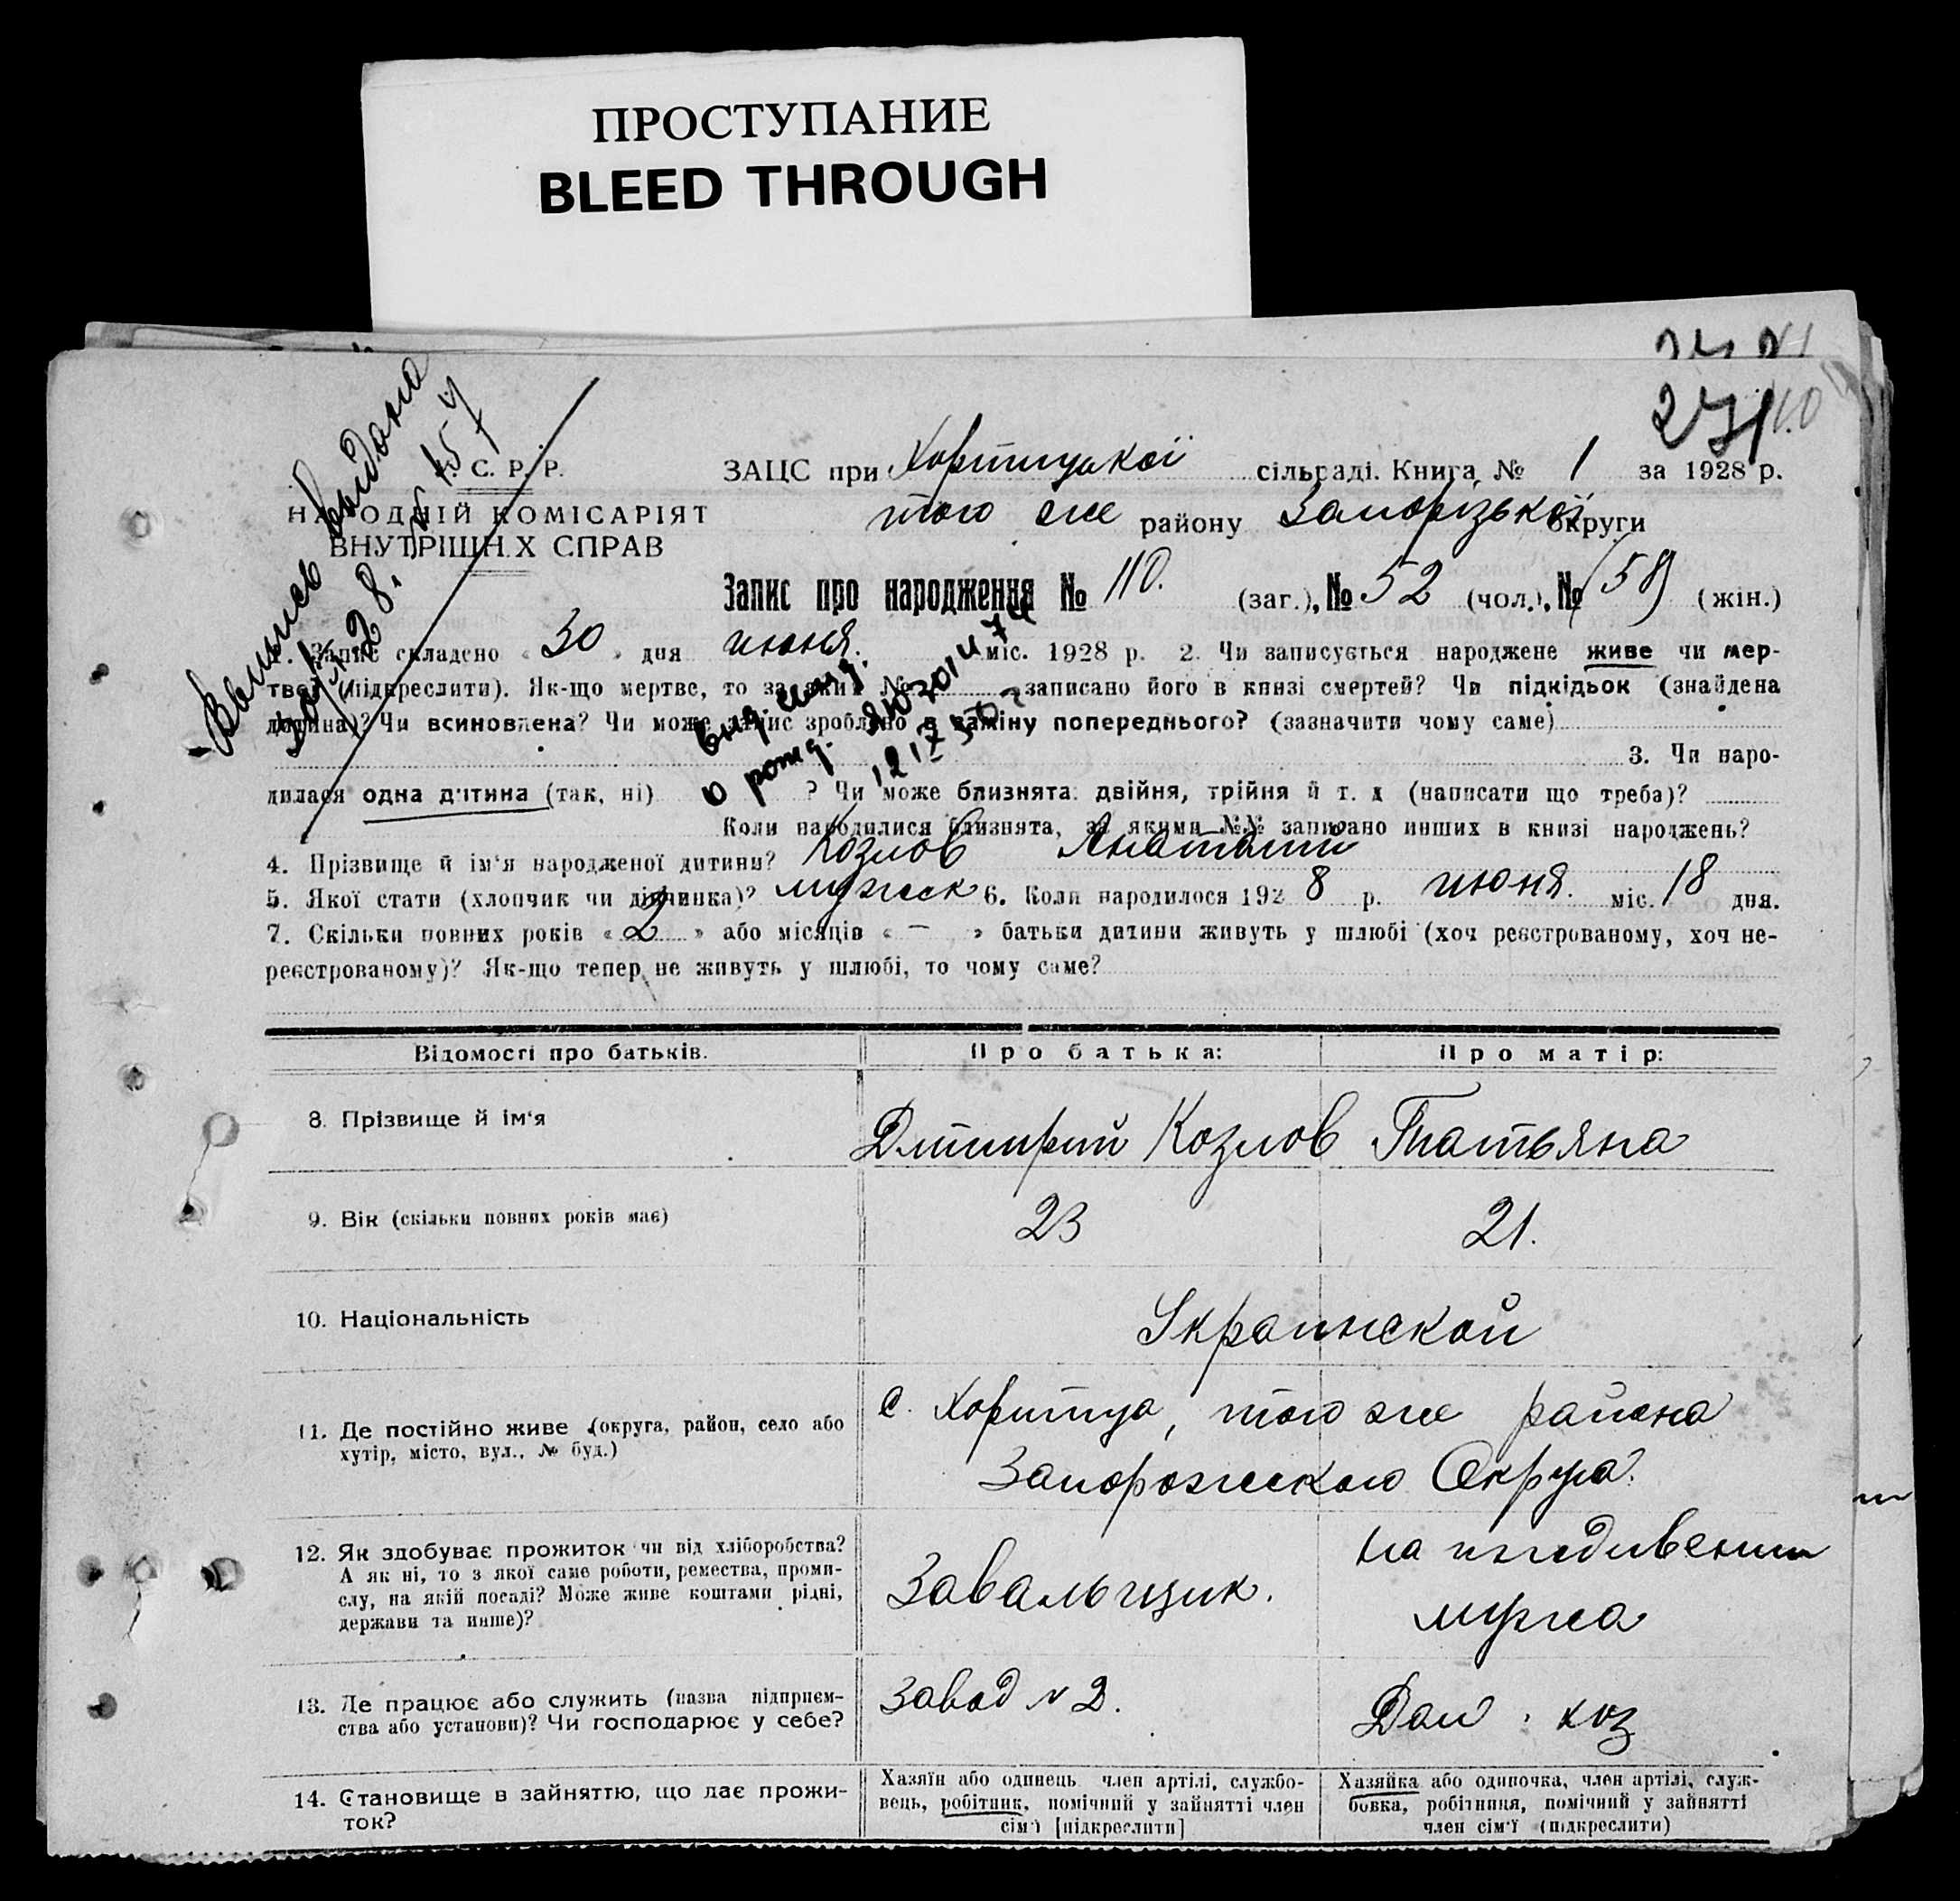 ПРОСТУПАНИЕ
BLEED THROUGH
271
Выпись выдана
30/VI-28. № 457
С. Р. Р.
НАРОДНІЙ КОМІСАРІЯТ
ВНУТРІШНІХ СПРАВ
ЗАЦС при Хортицької сільраді. Книга № 1 за 1928 р.
того же району Запорізької округи
Запис про народження № 110. (заг.), № 52 (чол.), № (58) (жін.)
1. Запис складено « 30 » дня июня. міс. 1928 р. 2. Чи записується народжене живе чи мер-
тве (підкреслити). Як-що мертве, то за яким № записано його в книзі смертей? Чи підкідьок (знайдена
дитина)? Чи всиновлена? Чи може запис зроблено в заміну попереднього? (зазначити чому саме)
3. Чи наро-
дилася одна дитина (так, ні) ? Чи може близнята: двійня, трійня й т. д. (написати що треба)?
Коли народилися близнята, за якими №№ записано инших в книзі народжень?
о рожд.
4. Прізвище й ім'я народженої дитини? Козлов Анатолий
5. Якої стати (хлопчик чи дівчинка)? мужеск 6. Коли народилося 192 8 р. июня. міс. 18 дня.
7. Скільки повних років « 2 » або місяців « – » батьки дитини живуть у шлюбі (хоч реєстрованому, хоч не-
реєстрованому)? Як-що тепер не живуть у шлюбі, то чому саме?
Відомості про батьків. Про батька: Про матір:
8. Прізвище й ім'я Дмитрий Козлов Татьяна
9. Вік (скільки повних років має) 23 21.
10. Національність Украинской
11. Де постійно живе (округа, район, село або
хутір, місто, вул., № буд.)
с. Хортица, того же района
Запорожского Округа.
12. Як здобуває прожиток чи від хліборобства?
А як ні, то з якої саме роботи, ремества, проми-
слу, на якій посаді? Може живе коштами рідні,
держави та инше)?
Завальщик.
на иждивении
мужа
13. Де працює або служить (назва підприєм-
ства або установи)? Чи господарює у себе?
Завод № 2.
Дом. хоз
14. Становище в зайняттю, що дає прожи-
ток?
Хазяїн або одинець член артілі, службо-
вець, робітник, помічний у зайнятті член
сім'ї [підкреслити]
Хазяйка або одиночка, член артілі, служ-
бовка, робітниця, помічний у зайнятті
член сім'ї (підкреслити)